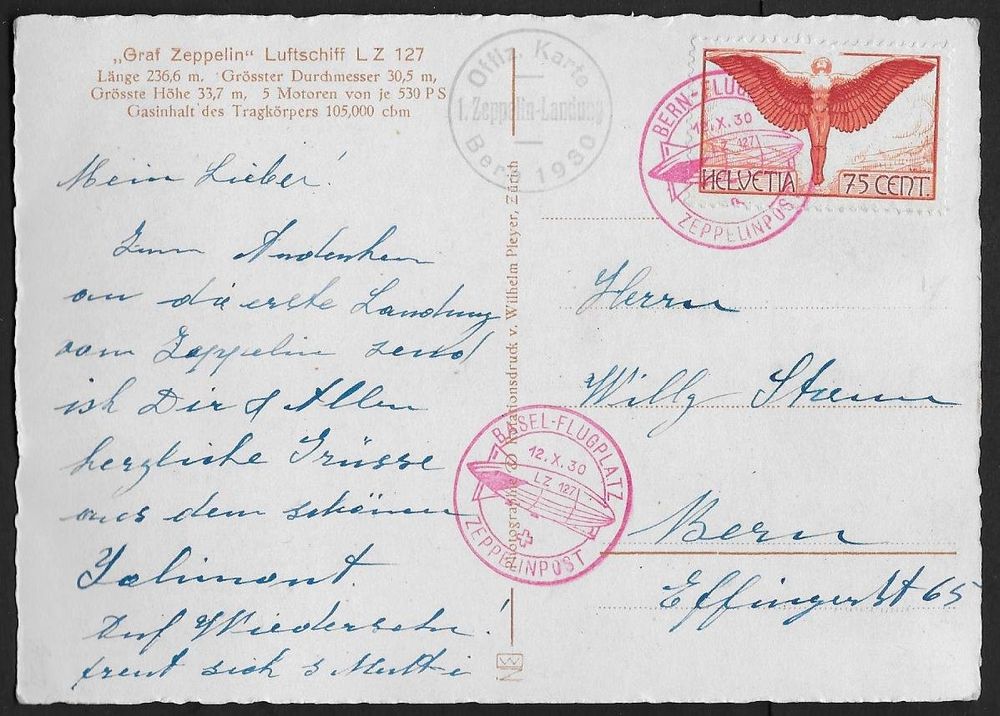 „Graf Zeppelin“ Luftschiff LZ 127
Länge 236,6 m. Grösster Durchmesser 30,5 m,
Grösste Höhe 33,7 m, 5 Motoren von je 530 PS
Gasinhalt des Tragkörpers 105,000 cbm
Offiz. Karte
1. Zeppelin-Landung
Bern 1930
BERN-FLUG
12.X.30
LZ 127
ZEPPELINPOST
HELVETIA 75 CENT.
Mein Lieber!
Zum Andenken
an die erste Landung
vom Zeppelin send
ich Dir & Allen
herzliche Grüsse
aus dem schönen
Jolimont.
Auf Wiedersehn!
freut sich s Mutti
Photographie & Rotationsdruck v. Wilhelm Pleyer, Zürich
BASEL-FLUGPLATZ
12.X.30
LZ 127
ZEPPELINPOST
Herrn
Willy
Bern
Effingerst 65